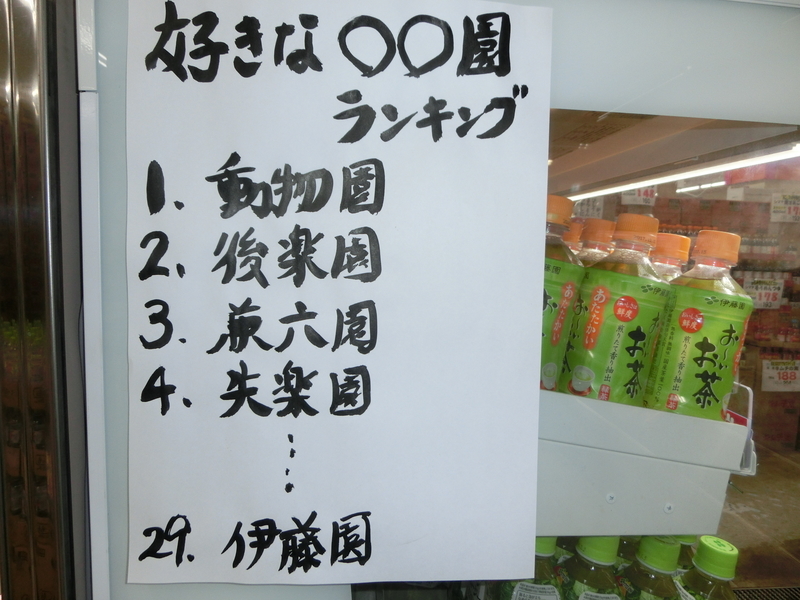 好きな○○園
ランキング
1. 動物園
2. 後楽園
3. 兼六園
4. 失楽園
⋮
29. 伊藤園
伊藤園
あたたかい
お〜いお茶
伊藤園
お〜いお茶
188